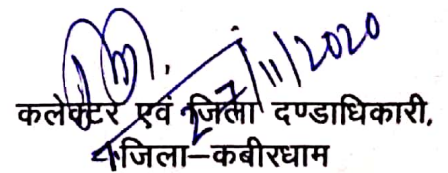 27/11/2020
कलेक्टर एवं जिला दण्डाधिकारी,
जिला–कबीरधाम